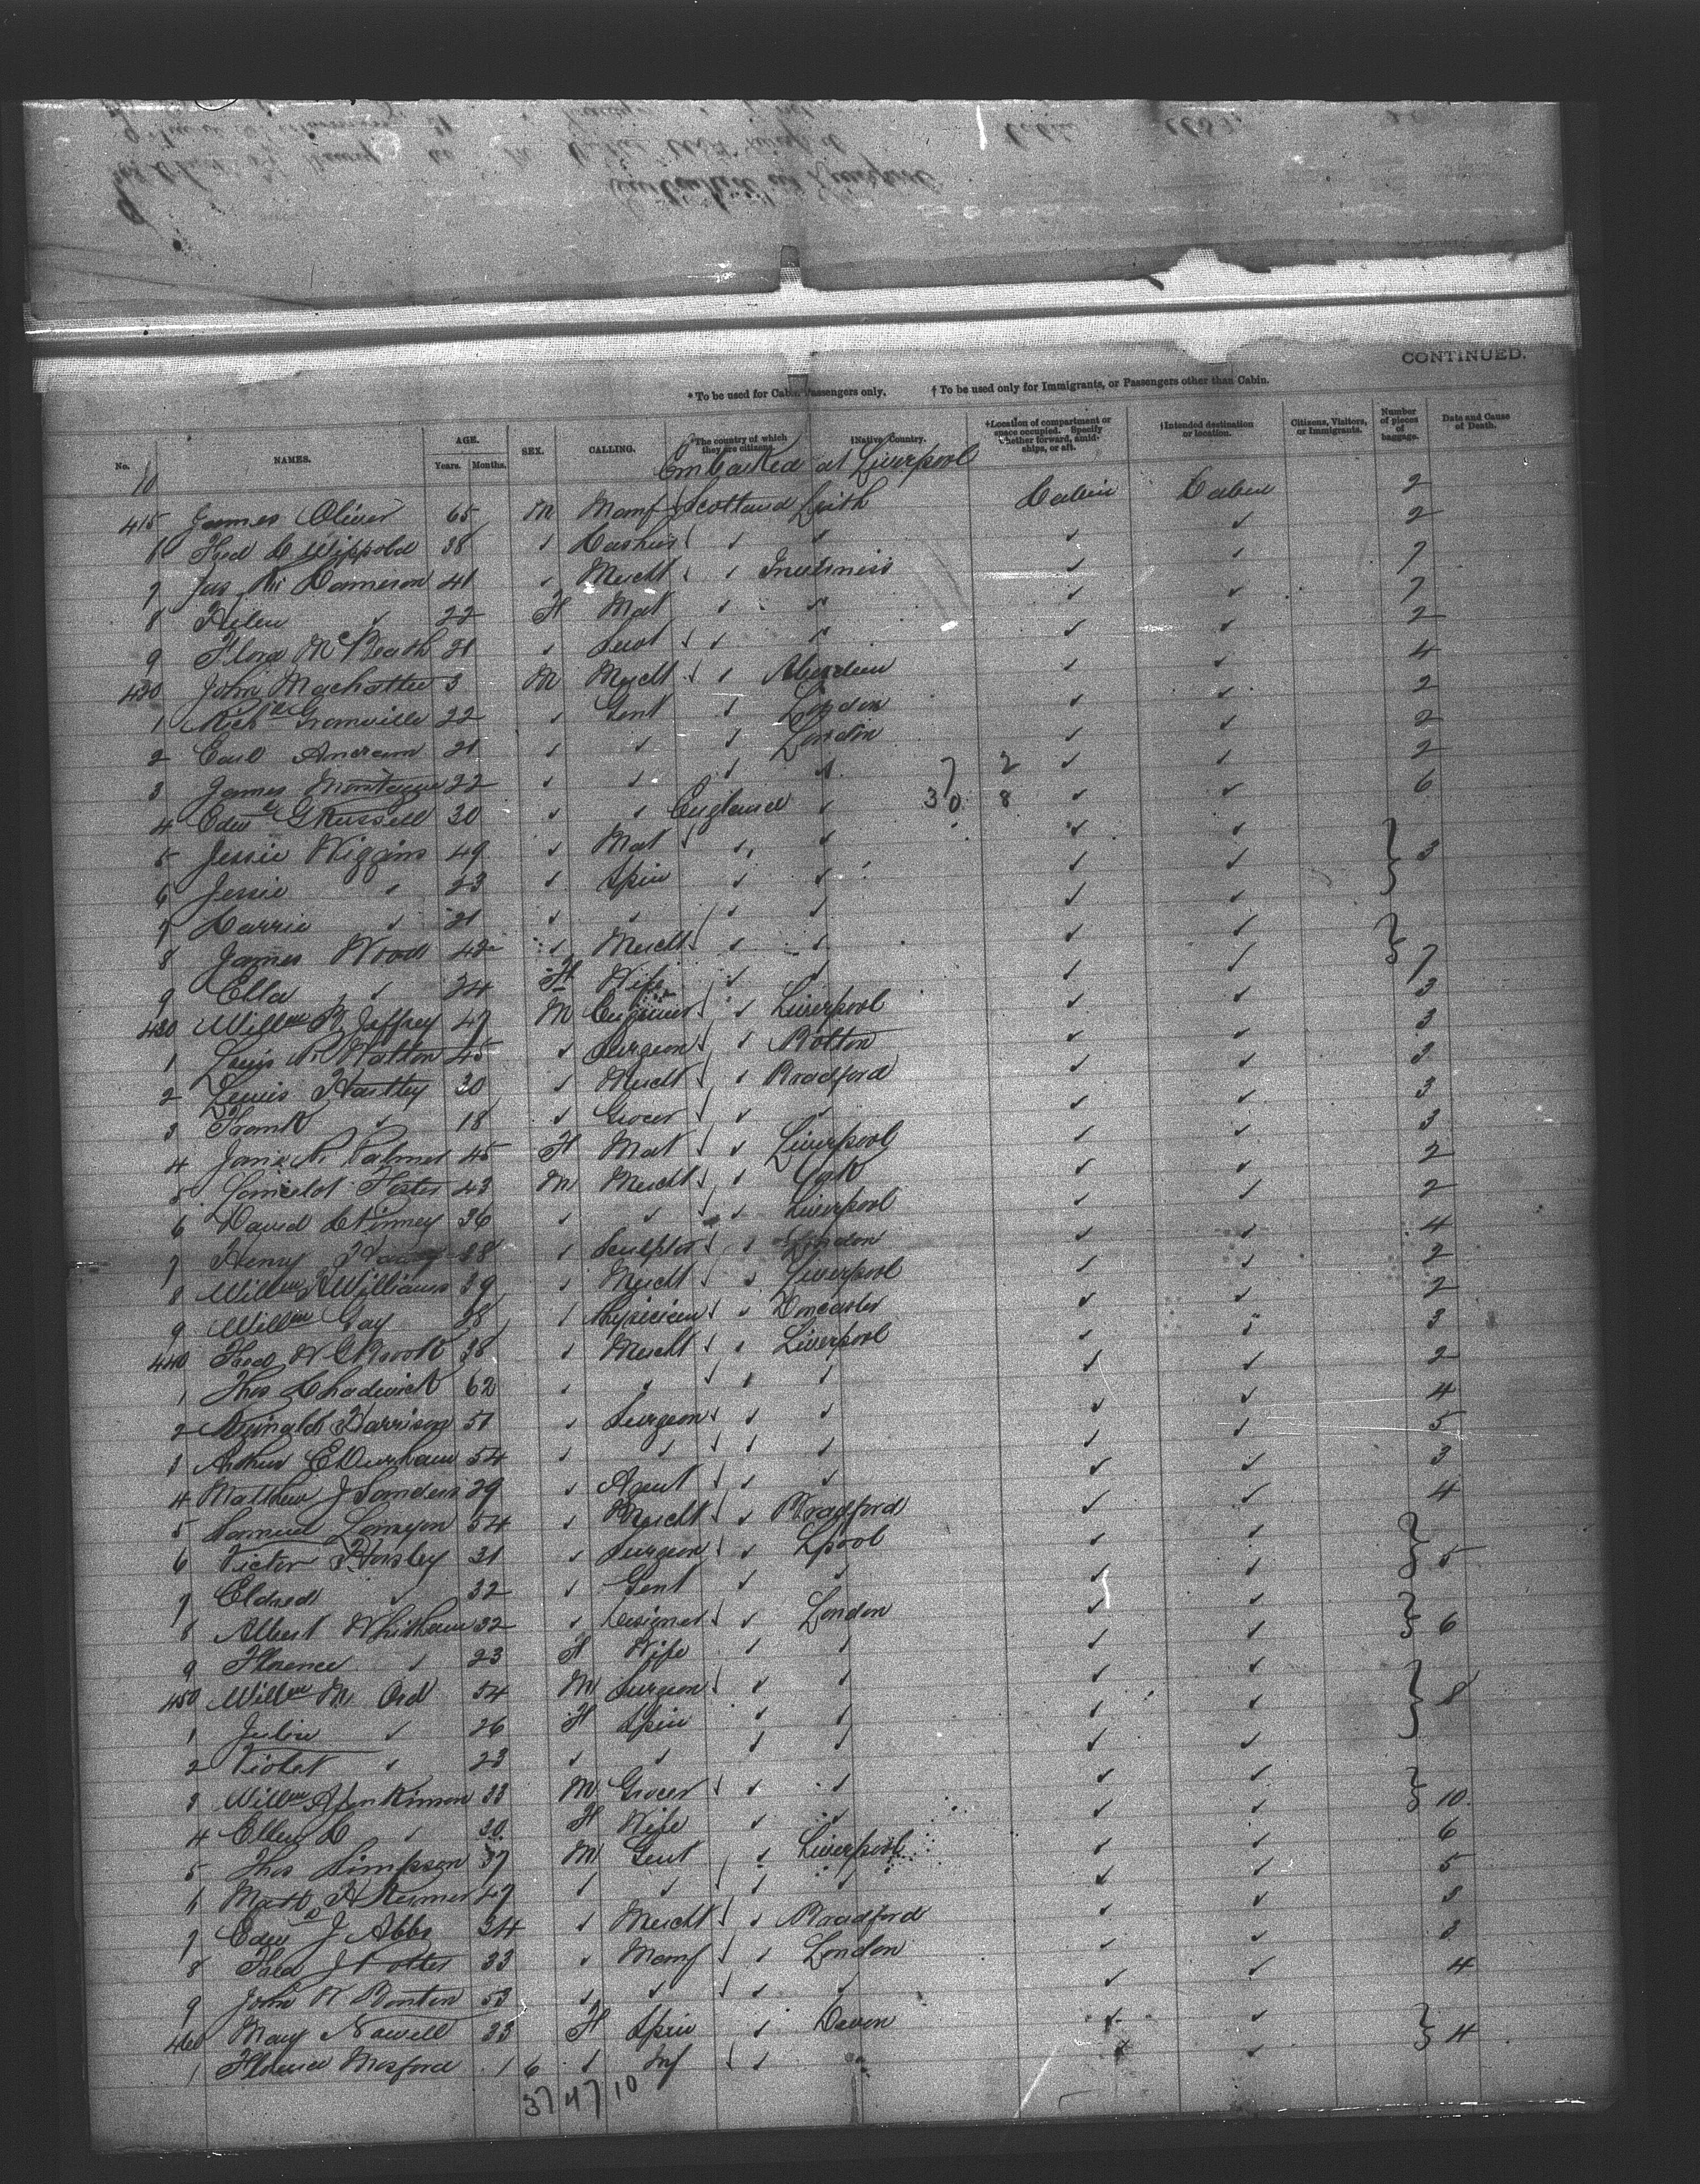 CONTINUED.
* To be used for Cabin Passengers only. † To be used only for Immigrants, or Passengers other than Cabin.
No. NAMES. AGE. Years. Months. SEX. CALLING. *The country of which they are citizens. †Native Country. †Location of compartment or space occupied. Specify whether forward, amidships, or aft. †Intended destination or location. Citizens, Visitors, or Immigrants. Number of pieces of baggage. Date and Cause of Death.
10 Embarked at Liverpool
415 James Oliver 65 M Manf Scotland Leith Cabin Cabin 2
6 Fred C Wippold 38 ✓ Cashier ✓ ✓ ✓ ✓ ✓ 2
7 Jas Cameron 41 ✓ Mercht ✓ ✓ Inverness ✓ ✓ 7
8 Helen ✓ 22 F Mat ✓ ✓ ✓ ✓ 7
9 Flora McBeath 21 ✓ Servt ✓ ✓ ✓ ✓ ✓ 2
420 John Machattie 3 M Mercht ✓ ✓ Aberdeen ✓ ✓ 4
1 Richd Granville 22 ✓ Gent ✓ London ✓ ✓ 2
2 Earl 21 ✓ ✓ ✓ London ✓ ✓ 2
3 James Montague 22 ✓ ✓ ✓ ✓ 2 ✓ ✓ 2
4 Edwd G Russell 30 ✓ ✓ England ✓ 30 8 ✓ ✓ 6
5 Jessie Wiggins 49 ✓ Mat ✓ ✓ ✓ ✓ ✓ 3
6 Jessie ✓ 23 ✓ Spin ✓ ✓ ✓ ✓
7 Carrie ✓ 21 ✓ ✓ ✓ ✓ ✓ ✓
8 James Wood 42 ✓ Mercht ✓ ✓ ✓ ✓ ✓ 7
9 Ella ✓ 24 F Wife ✓ ✓ ✓ ✓
430 Willm R Jeffrey 47 M Engineer ✓ ✓ Liverpool ✓ ✓ 3
1 Louis 45 ✓ Surgeon ✓ ✓ Bolton ✓ ✓ 3
2 Lewis Hartley 30 ✓ Mercht ✓ ✓ Bradford ✓ ✓ 3
3 Frank ✓ 18 ✓ Grocer ✓ ✓ ✓ ✓ ✓ 3
4 Jane Palmer 45 F Mat ✓ ✓ Liverpool ✓ ✓ 3
5 Lancelot Foster 43 M Mercht ✓ ✓ York ✓ ✓ 2
6 David Kinney 36 ✓ ✓ ✓ ✓ Liverpool ✓ ✓ 2
7 Henry 28 ✓ Sculptor ✓ ✓ London ✓ ✓ 4
8 Willm H Williams 39 ✓ Mercht ✓ ✓ Liverpool ✓ ✓ 2
9 Willm Gay 28 ✓ Physician ✓ ✓ Doncaster ✓ ✓ 2
440 Fred W G Brook 38 ✓ Mercht ✓ ✓ Liverpool ✓ ✓ 3
1 Thos Chadwick 62 ✓ ✓ ✓ ✓ ✓ ✓ ✓ 2
2 Reginald Harrison 51 ✓ Surgeon ✓ ✓ ✓ ✓ ✓ 4
3 Arthur E Durham 54 ✓ ✓ ✓ ✓ ✓ ✓ ✓ 5
4 Matthew J Sanders 29 ✓ Agent ✓ ✓ ✓ ✓ ✓ 3
5 Samuel 54 ✓ Mercht ✓ ✓ Bradford ✓ ✓ 4
6 Victor Horsley 31 ✓ Surgeon ✓ ✓ Lpool ✓ ✓ 5
7 Eldred ✓ 32 ✓ Gent ✓ ✓ ✓ ✓
8 Albert Whitham 32 ✓ Designer ✓ ✓ London ✓ ✓ 6
9 Florence ✓ 23 F Wife ✓ ✓ ✓ ✓
450 Willm M Ord 54 M Surgeon ✓ ✓ ✓ ✓ ✓ 8
1 Julia ✓ 26 F Spin ✓ ✓ ✓ ✓
2 Violet ✓ 23 ✓ ✓ ✓ ✓ ✓ ✓
3 Willm A Jenkinson 33 M Grocer ✓ ✓ ✓ ✓ ✓ 10
4 Ellen C ✓ 30 F Wife ✓ ✓ ✓ ✓
5 Thos Simpson 37 M Gent ✓ Liverpool ✓ ✓ 6
6 27 ✓ ✓ ✓ ✓ ✓ ✓ 5
7 Edwd J Abbs 34 ✓ Mercht ✓ ✓ Bradford ✓ ✓ 3
8 Fred J Potter 33 ✓ Manf ✓ ✓ London ✓ ✓ 3
9 John W Benton 53 ✓ ✓ ✓ ✓ ✓ ✓ ✓ 4
460 Mary Nowell 33 F Spin ✓ Devon ✓ ✓ 4
1 Florence Mosford 1 6 ✓ Inf ✓ ✓ ✓
37 47 10